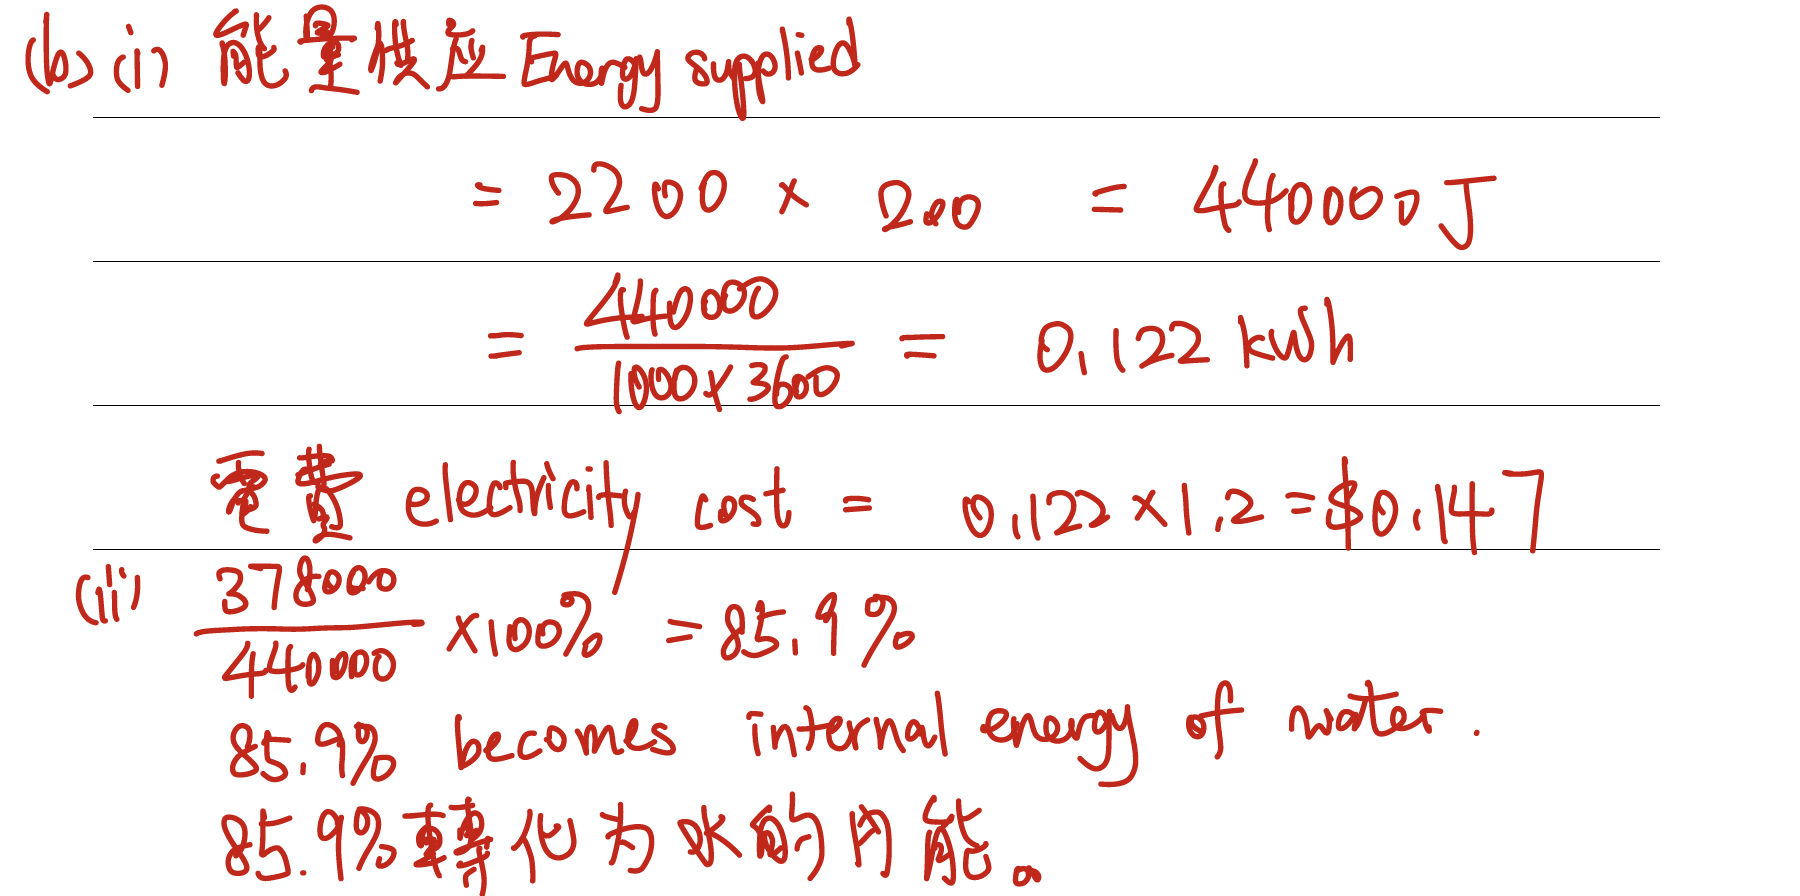 (b) (i) 能量供应 Energy supplied
= 2200 × 200 = 440000 J
= 440000 / 1000 × 3600 = 0.122 kWh
電費 electricity cost = 0.122 × 1.2 = $0.147
(ii) 378000 / 440000 × 100% = 85.9%
85.9% becomes internal energy of water.
85.9% 轉化为水的内能。